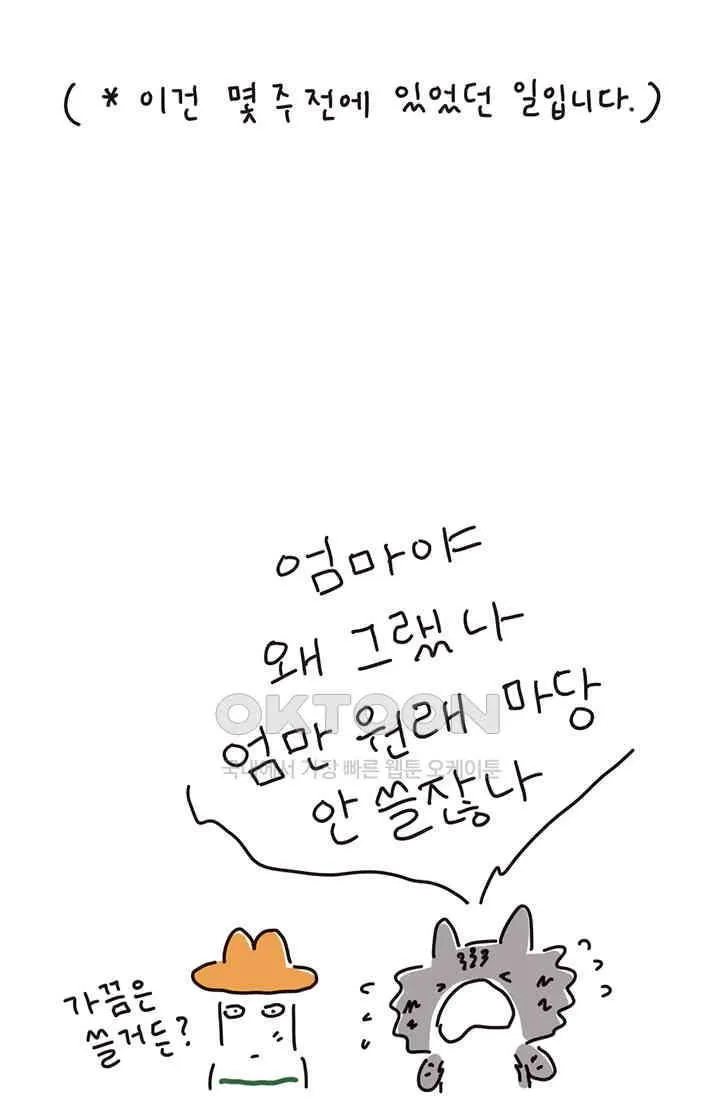 ( * 이건 몇주전에 있었던 일입니다.)
엄마야
왜 그랬나
OKTOON
엄만 원래 마당
국내에서 가장 빠른 웹툰 오케이툰
안 쓸잖나
가끔은
쓸거든?